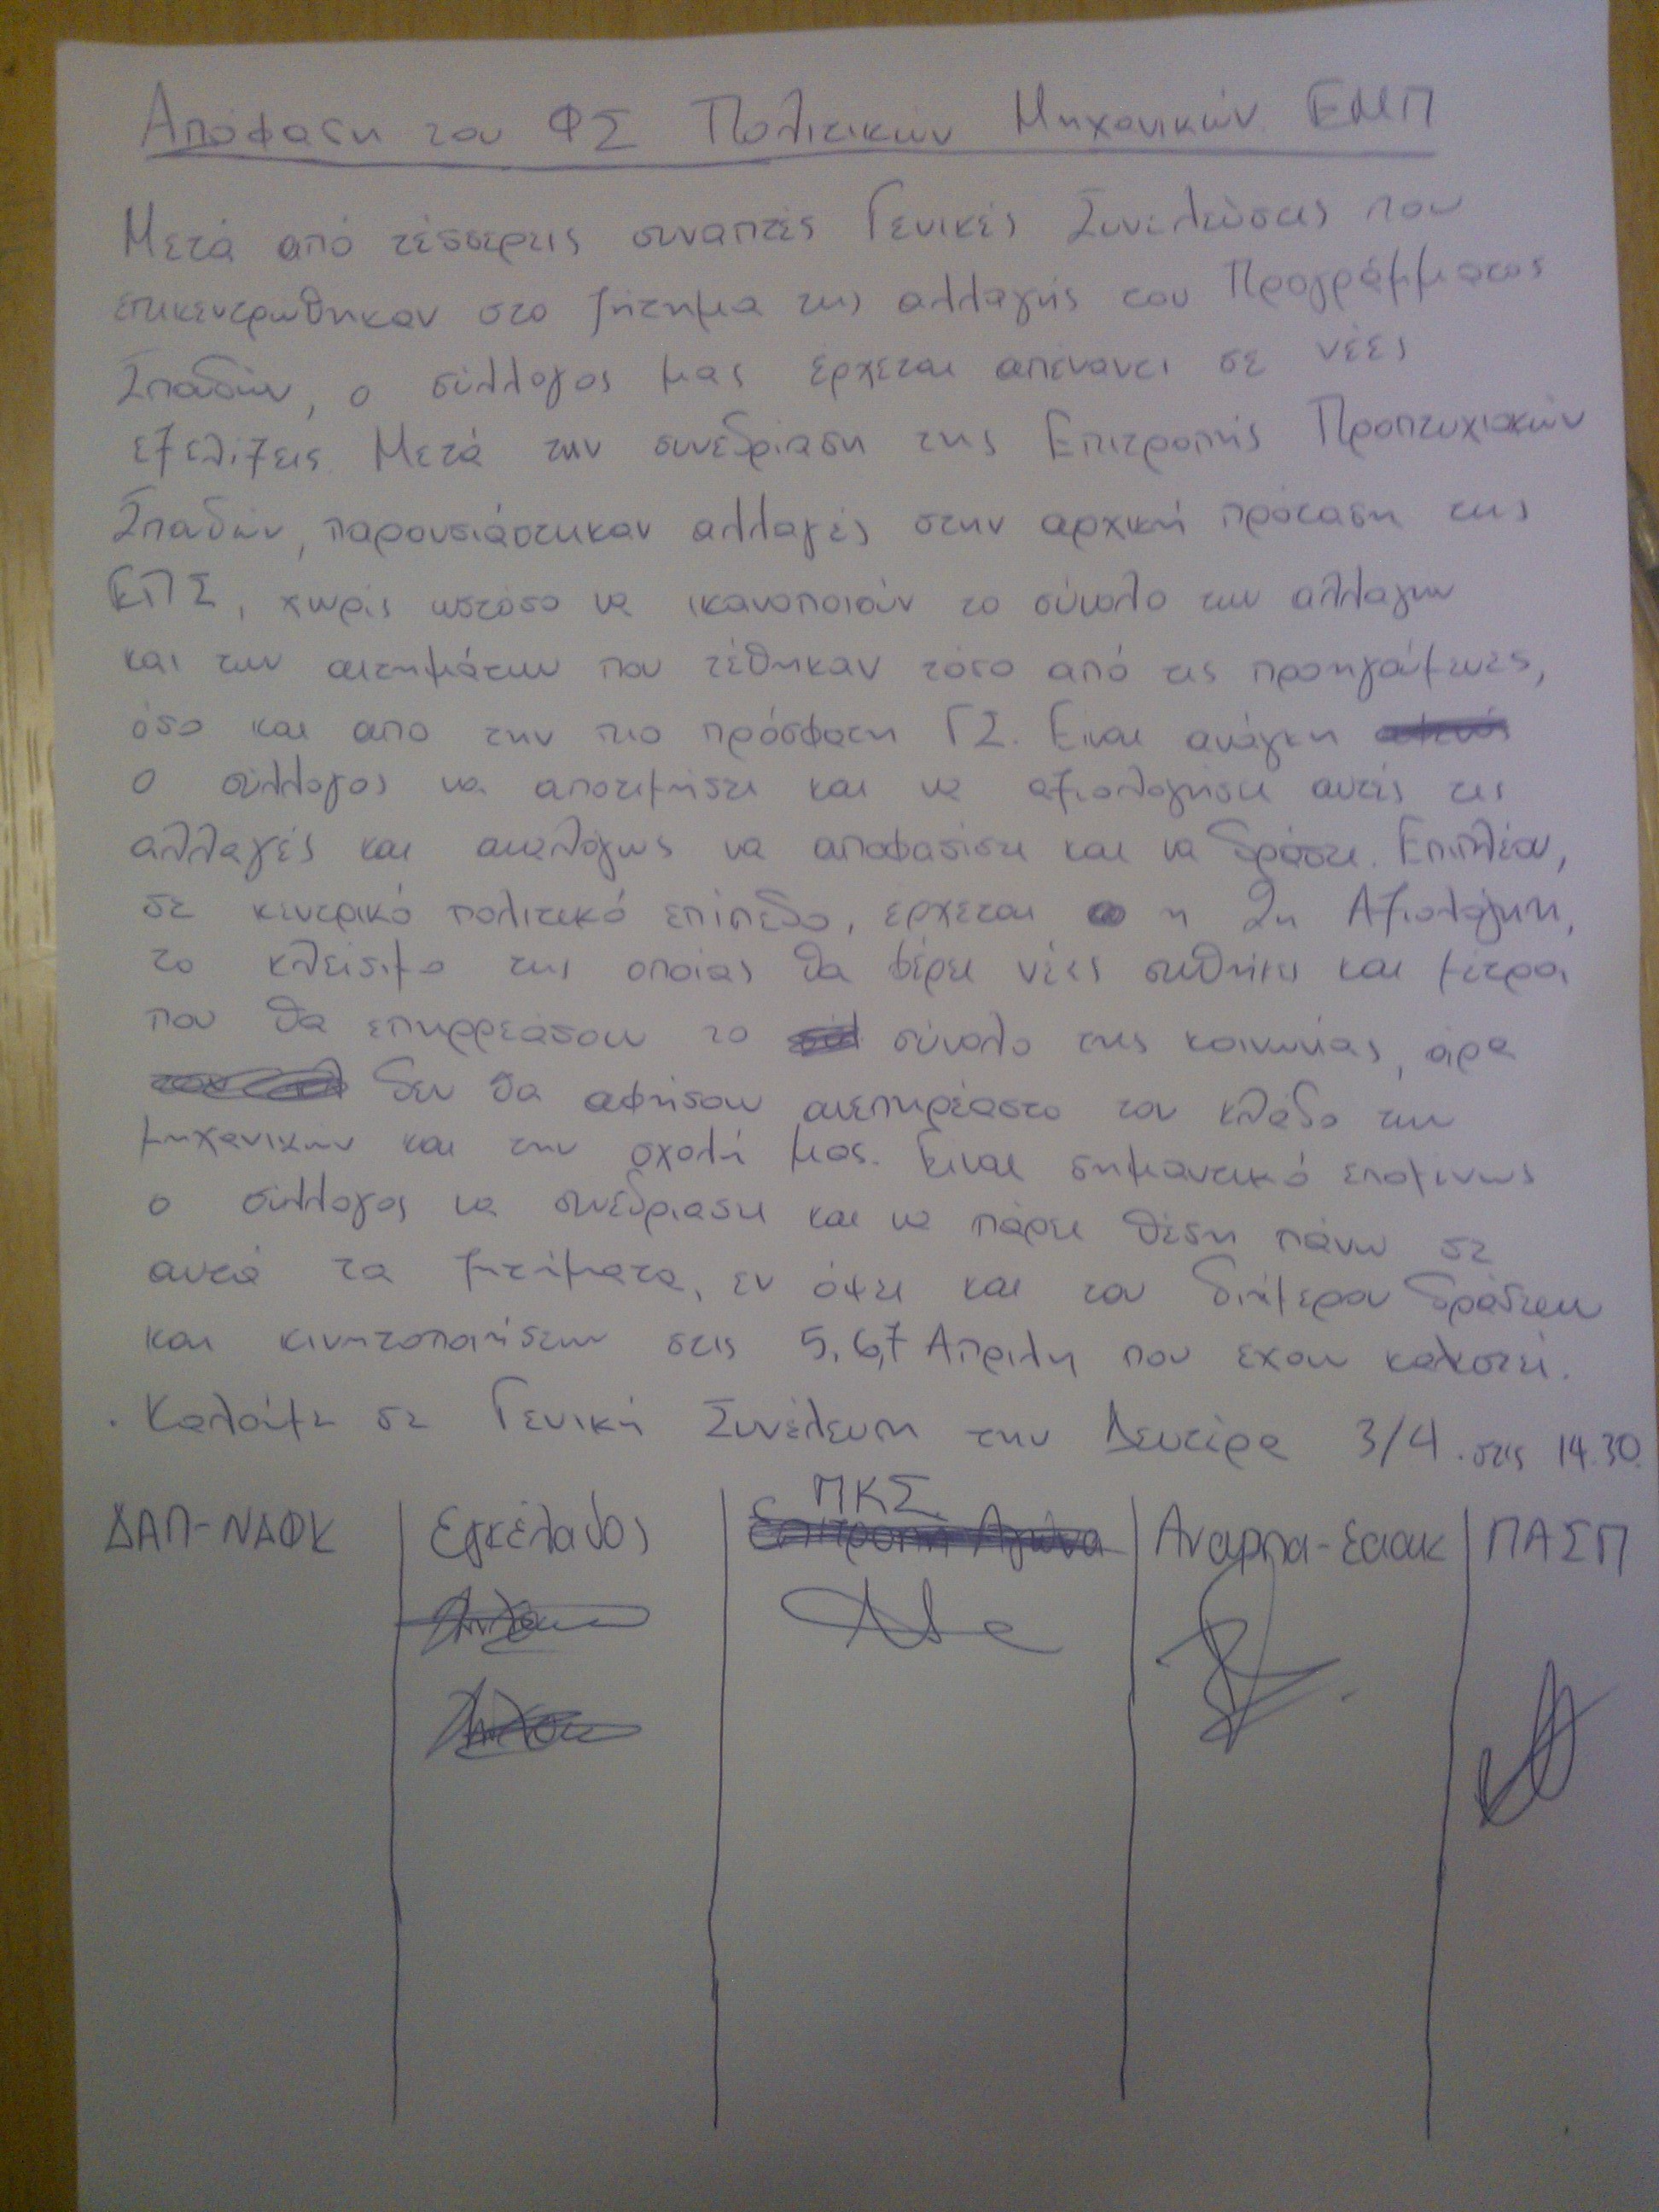 Απόφαση του ΦΣ Πολιτικών Μηχανικών ΕΜΠ
Μετά από τέσσερεις συναπτές Γενικές Συνελεύσεις που
επικεντρωθηκαν στο ζήτημα της αλλαγής του Προγράμματος
Σπουδών, ο σύλλογος μας έρχεται απέναντι σε νέες
εξελίξεις. Μετά την συνεδρίαση της Επιτροπής Προπτυχιακών
Σπουδών, παρουσιάστηκαν αλλαγές στην αρχική πρόταση της
ΕΠΣ, χωρίς ωστόσο να ικανοποιούν το σύνολο των αλλαγων
και των αιτημάτων που τέθηκαν τόσο από τις προηγούμενες,
όσο και απο την πιο πρόσφατη ΓΣ. Ειναι ανάγκη
ο σύλλογος να αποτιμήσει και να αξιολογήσει αυτές τις
αλλαγές και αναλόγως να αποφασίσει και να δράσει. Επιπλέον,
σε κεντρικό πολιτικό επίπεδο, ερχεται η 2η Αξιολόγηση,
το κλείσιμο της οποίας θα φέρει νέες συνθήκες και μέτρα
που θα επηρρεάσουν το σύνολο της κοινωνίας, άρα
δεν θα αφήσουν ανεπηρέαστο τον κλάδο των
μηχανικών και την σχολή μας. Ειναι σημαντικό επομένως
ο σύλλογος να συνεδριασει και να πάρει θέση πάνω σε
αυτά τα ζητήματα, εν όψει και του διήμερου δράσεων
και κινητοποιήσεων στις 5,6,7 Απριλη που εχουν καλεστεί.
. Καλούμε σε Γενική Συνέλευση την Δευτέρα 3/4 . στις 14.30.
ΠΚΣ
ΔΑΠ-ΝΔΦΚ Εγκέλαδος Επιτροπή Αγώνα Αναρπα-εαακ ΠΑΣΠ